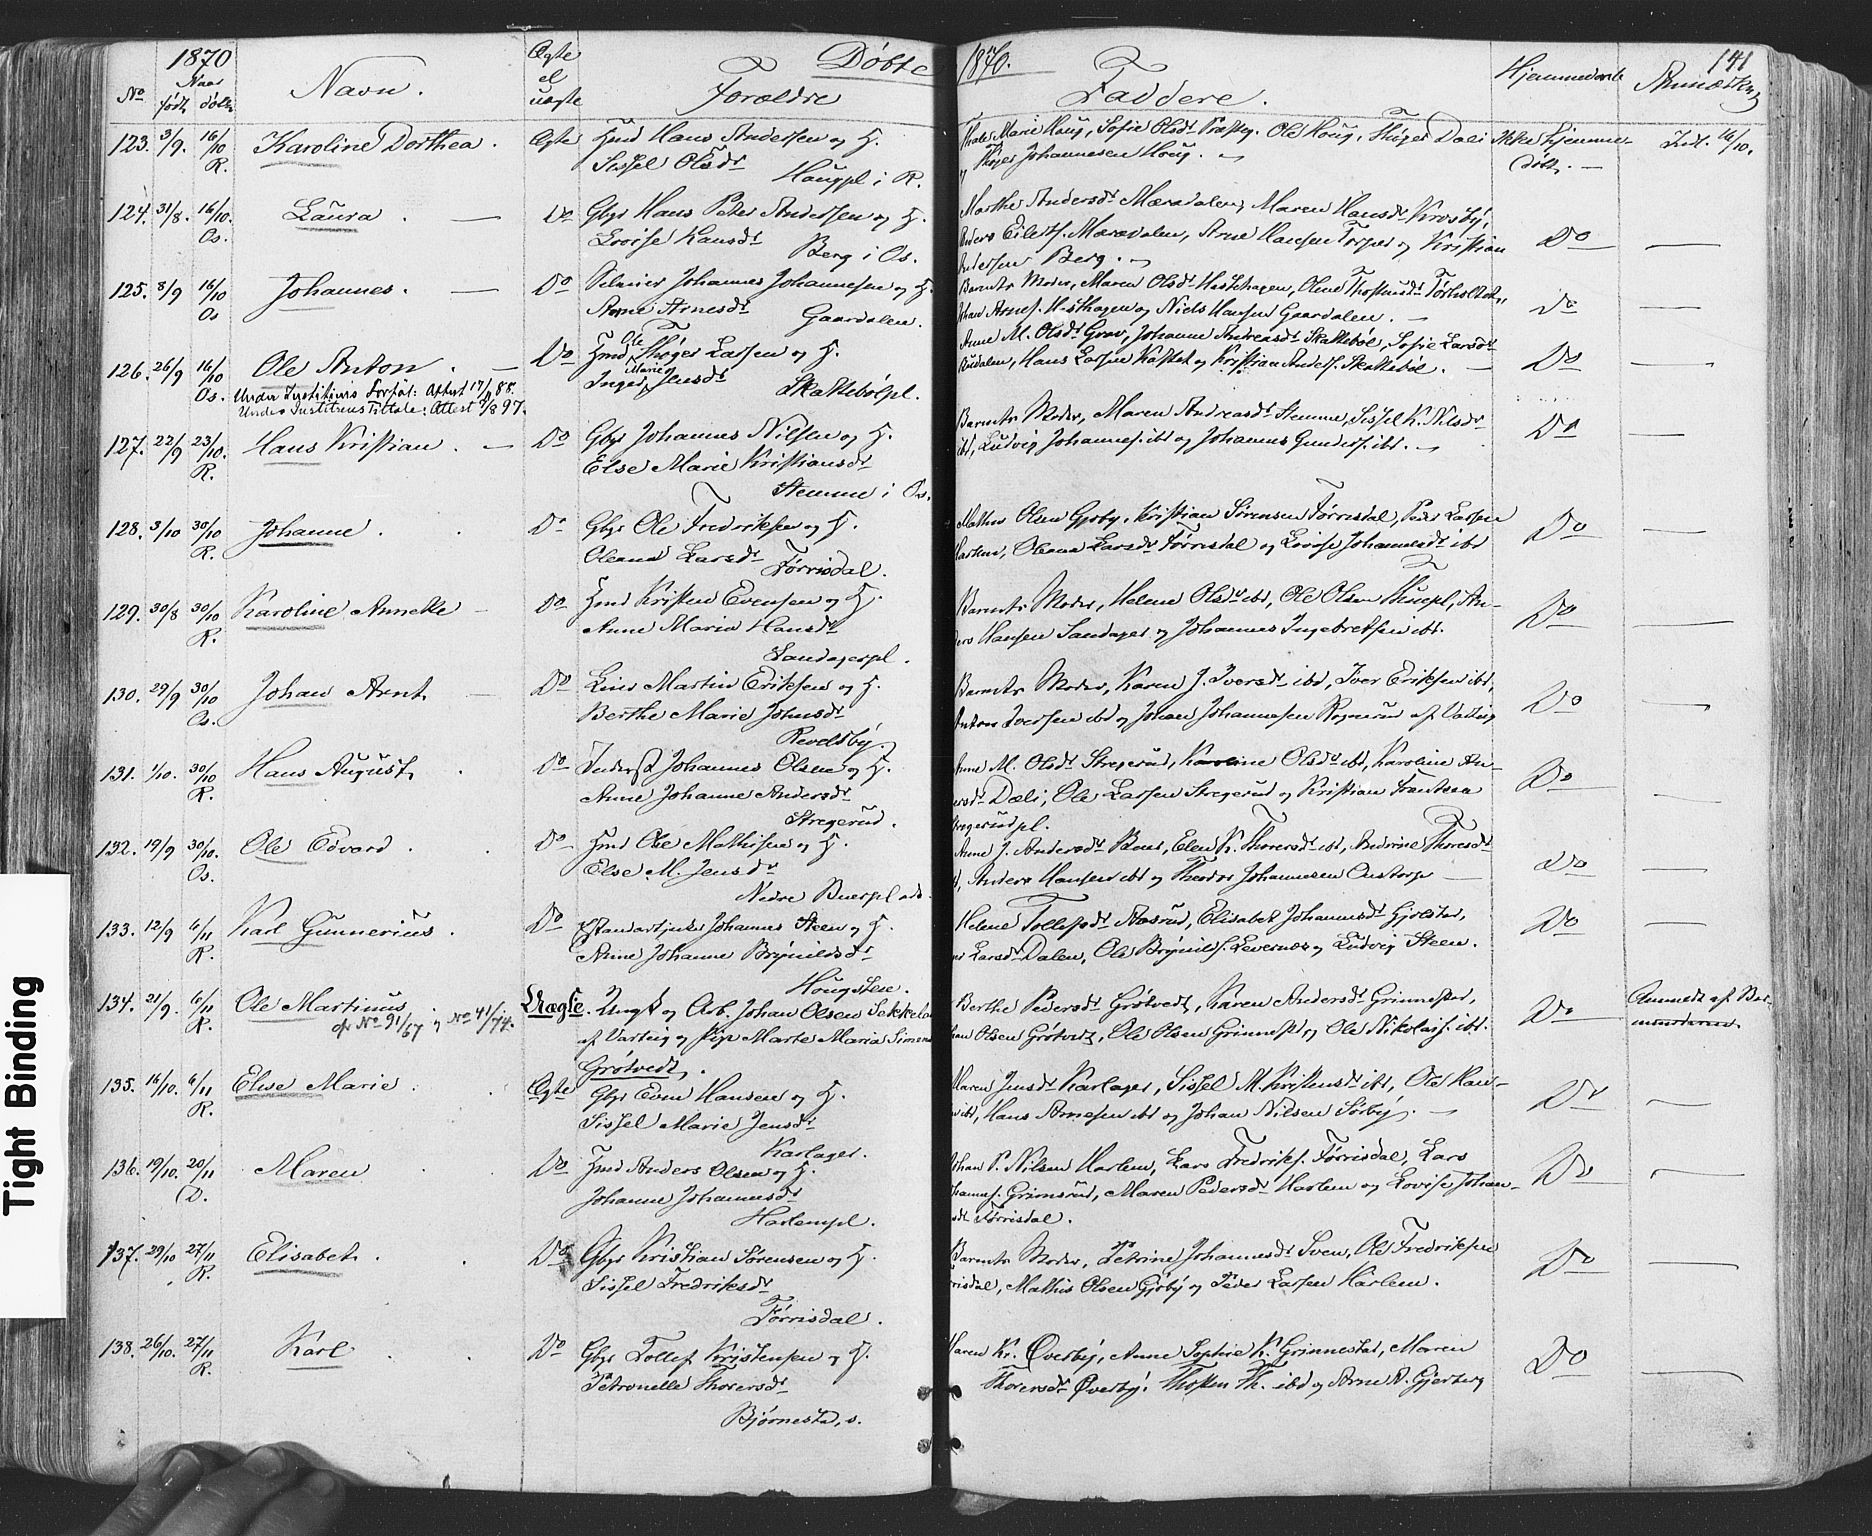 1870
Døbte
1870.
141
No
Naar
født
døbt
Navn.
Ægte
el
uægte
Forældre
Faddere.
Hjemmedøbt
Anmærkn.
123. 3/9. 16/10 R. Karoline Dorthea. Ægte Hmd Hans Andersen og H.
Sissel Olsdr
Hougpl i R.
Marie Houg, Sofie Olsdr Præsteg. Ole Houg, Thøger Dæli
Thøger Johannesen Houg.
Ikke hjemme-
døbt.
Indt. 16/10.
124. 31/8. 16/10. Os. Laura. Do Gbr Hans Peter Andersen og H.
Lovise Hansdr
Berg i Os.
Marthe Andersdr Mæradalen, Maren Hansdr Krosby,
Anders Eilerts. Mæradalen, Arne Hansen Torper og Kristian
Andersen Berg.
Do
125. 8/9 16/10 Os Johannes. Do Selveier Johannes Johannesen og H.
Anne Arnesdr
Gaardalen.
Barnets Moder, Maren Olsdr Hestehagen, Olene Thostensdr Torholtet,
Johan Arnes. Hesthagen og Niels Hansen Gaardalen.
Do
126. 26/9 16/10 Os. Ole Anton. Do Hmd Ole Thøger Larsen og H.
Inger Marie Jensdr
Skakkebølpl.
Under Institiens Forfat: Attest 17/11 88.
Under Institiens Tiltale: Attest 3/8 97.
Anne M. Olsdr Grav, Johanne Andreasdr Skakkebøl, Sofie Larsdr
Hans Larsen Kastet og Kristian Anders. Skakkebøl.
Do
127. 22/9 23/10. R. Hans Kristian. Do Gbr Johannes Nilsen og H.
Else Marie Kristiansdr
Stemme i Os.
Barnets Moder, Maren Andreasdr Stemme, Sissel K. Nilsdr
ibd, Ludvig Johannes. ibd og Johannes Gunders. ibd.
Do
128. 3/10 30/10 R. Johanne. Do Gbr Ole Fredriksen og H.
Oleana Larsdr Tørrisdal.
Mathis Olsen Gjøby, Kristian Sørensen Tørrisdal, Peder Larsen
Harlem, Oleana Larsdr Tørrisdal og Lovise Johannesdr ibd
Do
129. 30/8 30/10 R. Karoline Annette Do Hmd Kristen Evensen og H.
Anne Maria Hansdr
Sandagerpl.
Barnets Moder, Helene Olsdr ibd, Ole Olsen Thuepl, An-
ders Hansen Sandager og Johannes Ingebretsen ibd.
Do
130. 29/9 30/10 Os. Johan Arnt Do Leier Martin Eriksen og H.
Berthe Marie Johnsdr
Revelsby.
Barnets Moder, Karen J. Iversdr ibd, Iver Eriksen ibd,
Anton Iversen ibd og Johan Johannesen Rognerud af Varteig
Do
131. 1/10. 30/10 R. Hans August. Do Inderst Johannes Olsen og H.
Anne Johanne Andersdr
Stregerud.
Anne M. Olsdr Stregerud, Karoline Olsdr ibd, Karoline An-
dersdr Dæli, Ole Larsen Stregerud og Kristian Frantsen
Stregerudpl.
Do
132. 19/9 30/10. Os. Ole Edvard. Do Hmd Ole Mathisen og H.
Else M. Jensdr
Nedre Buerpl
Anne J. Andersdr Buer, Elen K. Thoresdr ibd, Andrine Thoresdr
ibd, Anders Hansen ibd og Theodor Johannesen Oustorp
Do
133. 12/9 6/11 R. Karl Gunnerius. Do Standartjunker Johannes Steen og H.
Anne Johanne Brynildsdr
Hougsteen.
Helene Tollefsdr Aaserud, Elisabet Johannesdr Gjølstad,
Larsdr Dalen, Ole Brynilds. Levernæs og Ludvig Steen.
Do
134. 21/9. 6/11 R. Ole Martinus. Uægte. Ungk og Arb. Johan Olsen Sekkelsten
af Varteig og Pige Marte Maria Simensdr
Grøtvedt.
cfr No 91/67 og No 41/74.
Berthe Pedersdr Grøtvedt, Karen Andersdr Grimnestad,
Johan Olsen Grøtvedt, Ole Olsen Grimnestad og Ole Nikolais. ibd.
Do
Anmeldt af Bar-
nemoderen.
135. 16/10. 6/11 R. Elise Marie. Ægte Gbr Even Hansen og H.
Sissel Marie Jensdr
Karlager.
Maren Jensdr Karlager, Sissel M. Kristensdr ibd, Ole Han-
sen ibd, Hans Arnesen ibd og Johan Nilsen Sørby.
Do
136. 19/10. 20/11 D. Maren Do Hmd Anders Olsen og H.
Johanne Johannesdr
Harlempl.
Johan P. Nilsen Harlem, Lars Fredriks. Tørrisdal, Lars
Johannes. Grimsrud, Maren Pedersdr Harlem og Lovise Johan-
nesdr Tørrisdal.
Do
137. 29/10 27/11 R. Elisabet. Do Gbr Kristian Sørensen og H.
Sissel Fredriksdr
Tørrisdal.
Barnets Moder, Petrine Johannesdr Sven, Ole Fredriksen
Tørrisdal, Mathis Olsen Gjøby og Peder Larsen Harlem.
Do
138. 26/10. 27/11 R. Karl. Do Gbr Tollef Kristensen og H.
Petronelle Thoresdr
Bjørnestad, s.
Maren Kr. Øverby, Anne Sophie K. Grimnestad, Maren
Thoresdr Øverby, Thosten Th. ibd og Arne A. Gjerberg
Do
Tight Binding